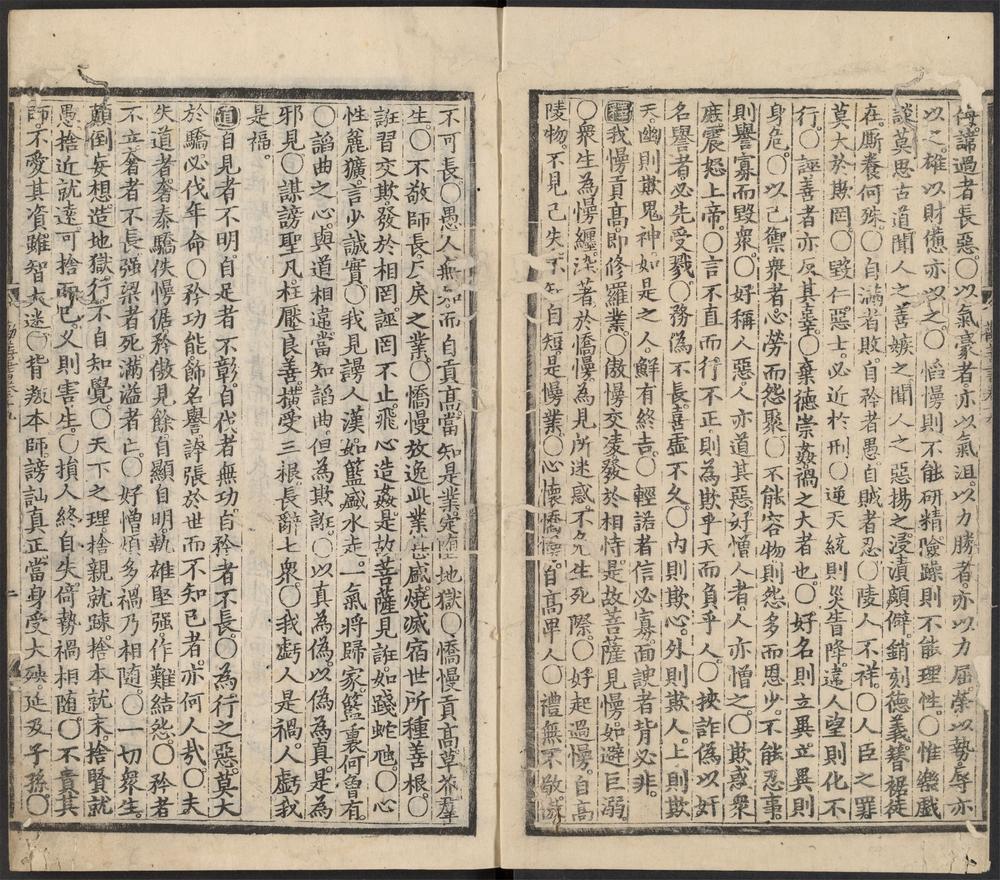 侮諱過者長惡。〇以氣豪者亦以氣沮。以力勝者。亦以力屈。榮以勢辱亦
以之。雄以財憊亦以之。〇慆慢則不能研精。險躁則不能理性。〇惟樂戲
談。莫思古道。聞人之善嫉之。聞人之惡揚之。浸漬頗僻。銷刻德義。簪裾徒
在。厮養何殊。〇自滿者敗。自矜者愚。自賊者忍。〇陵人不祥。〇人臣之罪
莫大於欺罔。〇毀仁惡士。必近於刑。〇逆天統則災眚降。違人望則化不
行。〇誣善者亦反其辜。〇棄德崇姦禍之大者也。〇好名則立異立異則
身危。〇以己禦衆者心勞而怨聚。〇不能容物則怨多而恩少。不能忍事。
則譽寡而毀衆。〇好稱人惡。人亦道其惡。好憎人者。人亦憎之。〇欺惑衆
庶。震怒上帝。〇言不直而行不正。則為欺乎天而負乎人。〇挾詐偽以奸
名譽者。必先受戮。〇務偽不長。喜虛不久。〇內則欺心。外則欺人。上則欺
天。幽則欺鬼神。如是之人。鮮有終吉。〇輕諾者信必寡。面諛者背必非。
釋我慢貢高。即修羅業。〇傲慢交凌。發於相恃。是故菩薩見慢。如避巨溺。
〇衆生為慢纏。染著於憍慢。為見所迷惑。不免生死際。〇好起過慢。自高
陵物。不見己失。不自短。是慢。〇心懷憍慢。自高卑人。〇禮無不敬。
不可長。〇愚人無知而自貢高。當知是業。定墮地獄。〇憍慢貢高。草芥羣
生。〇不敬師長。反戾之業。〇憍慢放逸。此業熾盛。燒滅宿世所種善根。〇
誑習交欺。發於相罔。誣罔不止。飛心造姦。是故菩薩見誑。如踐蛇虺。〇心
性麁獷。言少誠實。〇我見謾人漢。如籃盛水走。一氣將歸家。籃裏何曾有。
〇謟曲之心。與道相違。當知謟曲。但為欺誑。〇以真為偽。以偽為真。是為
邪見。〇謀謗聖凡。枉壓良善。橫受三根。長辭七衆。〇我虧人是禍。人虧我
是福。
道自見者不明。自足者不彰。自伐者無功。自矜者不長。〇為行之惡。莫大
於驕。必伐年命。〇矜功能飾名譽。誇張於世而不知已者。亦何人哉。〇夫
失道者。奢泰驕佚。慢倨矜傲。見餘自顯自明。執雄堅强。作難結怨。〇矜者
不立。奢者不長。强梁者死。滿溢者亡。〇好憎煩多。禍乃相随。〇一切衆生。
顛倒妄想。造地獄行。不自知覺。〇天下之理。捨親就踈。捨本就末。捨賢就
愚。捨近就遠。可捨而已。乂則害生。〇損人終自失。倚勢禍相随。〇不貴其
師。不愛其資。雖智大迷。〇背叛本師。謗訕真正。當身受大殃。延及子孫。〇